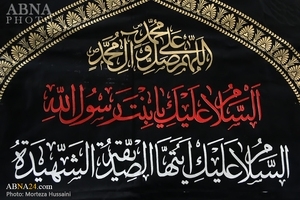 ABNA
PHOTO
اللهم صل على محمد وآل محمد
السلام عليك يا بنت رسول الله
السلام عليك أيتها الصديقة الشهيدة
ABNA24.com
Photo: Morteza Hussaini